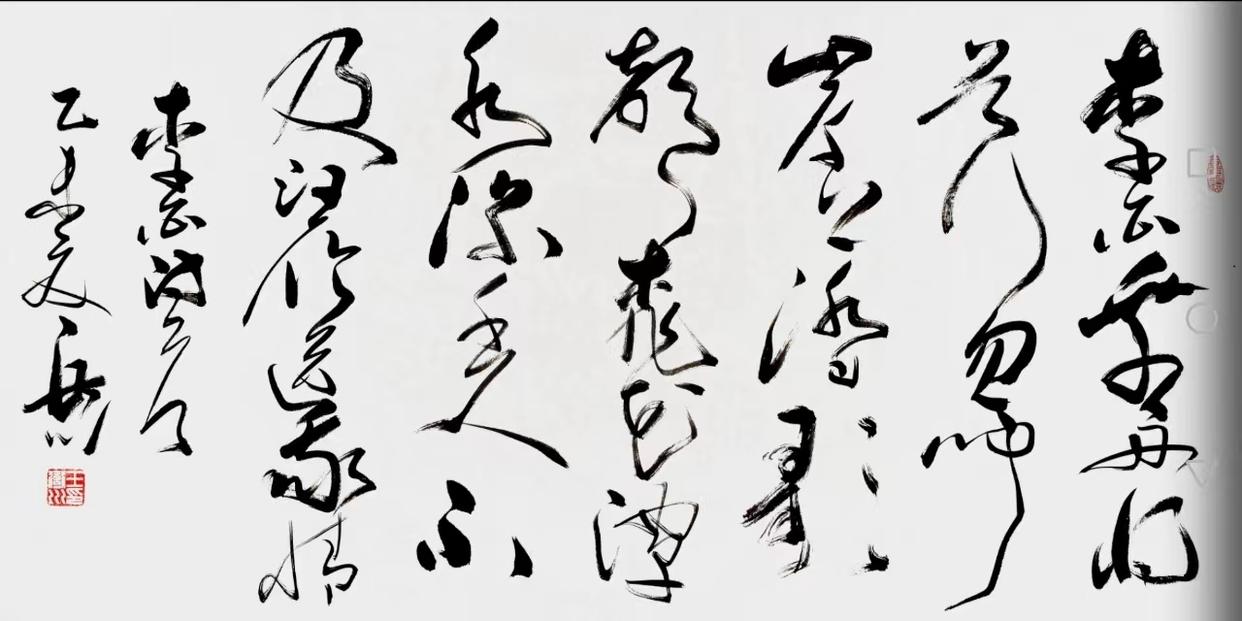 李白乘舟將
欲行忽聞
岸上踏歌
聲桃花潭
水深千尺不
及汪倫送我情
李白詩
乙未夏